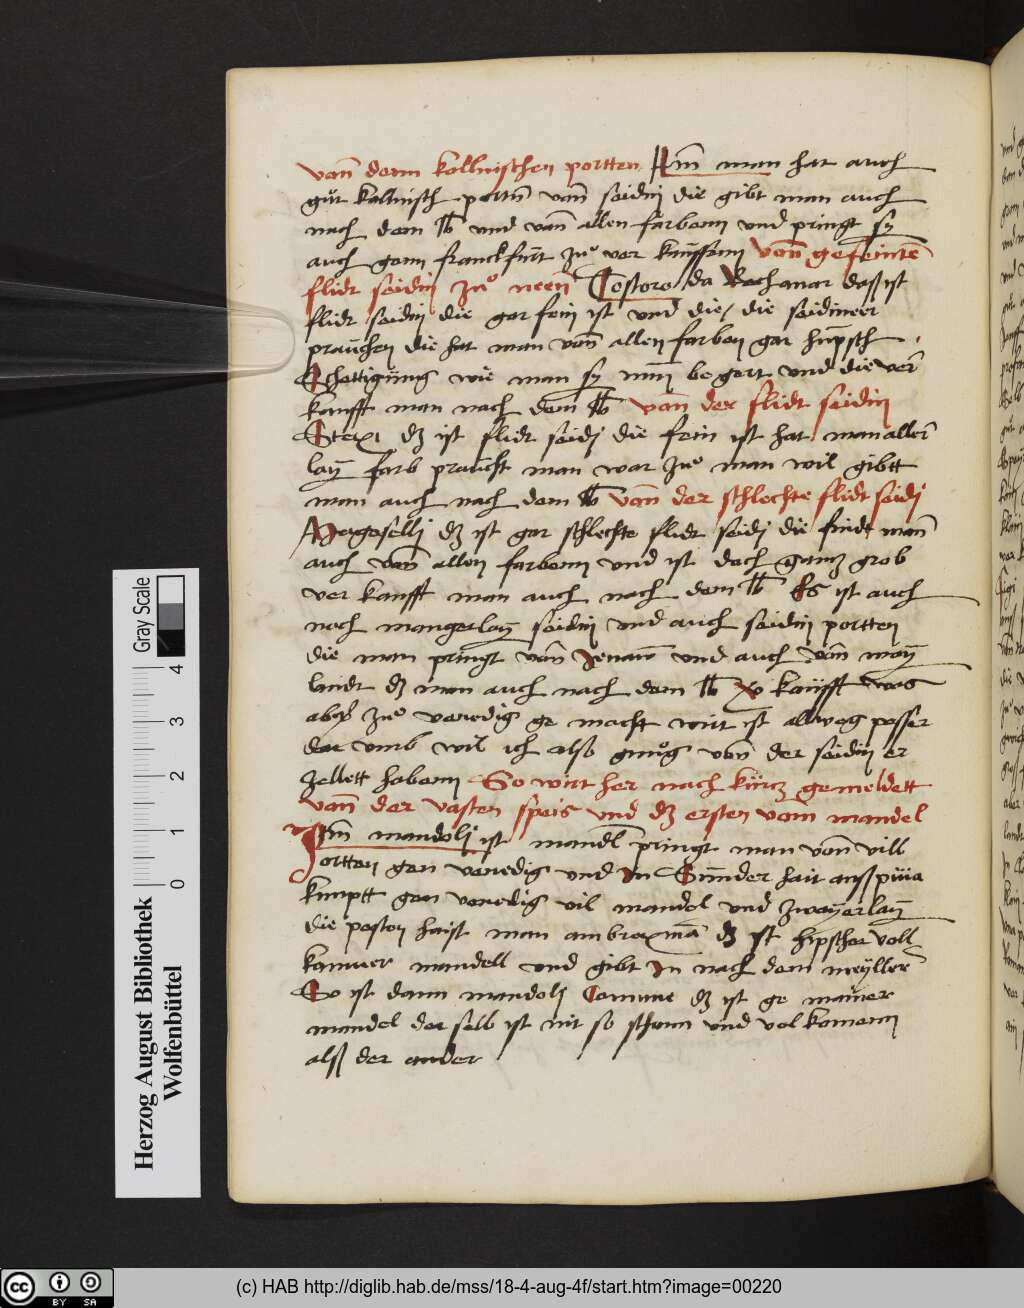 vonn denn kollnischen portten Item man hat auch
gůt kolnisch portn vonn seidin die gibt man auch
nach dem lb und vonn allen farbenn und pringt sy
auch genn franckfurt zuͦ ver kauffenn vonn gefeinte
flidt seidin zuͦ neen Costoro da Bachanar daß ist
flidt seidin die gar fein ist und die die seidineer
prauchen die hat man vonn allen farben gar hupsch
Schattigung wie man sy nun begert und die ver
kaufft man nach dem lb vonn der flidt seidin
ist flidt seidi die fein ist hat man aller
lay farb praucht man war zuͦ man wil gibtt
man auch nach dem lb vonn der schlechte flidt seidi
ist gar schlechte flidt seidi die findt mann
auch vonn allen farbenn und ist doch gantz grob
ver kaufft man auch nach dem lb Es ist auch
noch mangerlay seidin und auch seidin portten
die man pringt von Jenaw und auch vonn may
landt dz man auch nach dem lb ver kaufft was
aber zuͦ venedig ge macht wirt ist allweg pesser
dar umb wil ich also gnuͦg von der seidin er
zellett habenn So wirt her nach kurtz gemeldett
vonn der vasten speis und dz ersten vom mandel
Item mandoli ist mandl pringt man vonn vill
ortten gen venedig und In Sunder hait auß puia
kumptt gen venedig vil mandel und zwayerlay
die pesten haist man ambroxina dz ist hipscher voll
kamner mandell und gibt In nach dem meyller
So ist dann mandoli Comune dz ist ge mainer
mandel der selb ist nit so schonn und volkomenn
alß der ander
Herzog August Bibliothek
Wolfenbüttel
Gray Scale
0 1 2 3 4
cc BY SA
(c) HAB http://diglib.hab.de/mss/18-4-aug-4f/start.htm?image=00220